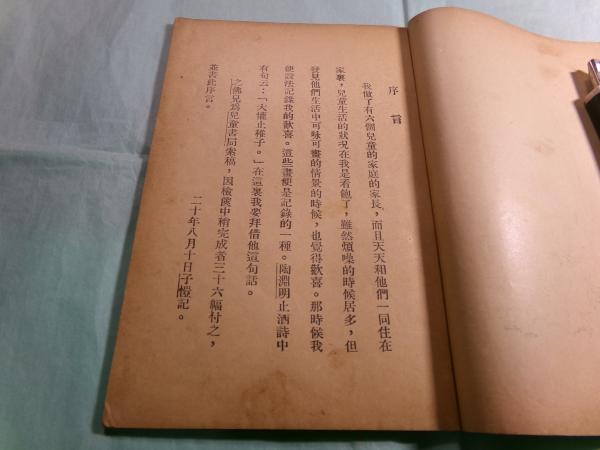 序言
我做了有六個兒童的家庭的家長，而且天天和他們一同住在
家裏，兒童生活的狀況在我是看飽了，雖然煩噪的時候居多，但
發見他們生活中可咏可畫的情景的時候，也覺得歡喜。那時候我
便設法記錄我的歡喜。這些畫便是記錄的一種。陶淵明止酒詩中
有句云：「大懽止稚子。」在這裏我要拜借他這句話。
之佛兄爲兒童書局索稿，因檢篋中稍完成者三十六幅付之，
並書此序言。
二十年八月十日子愷記。